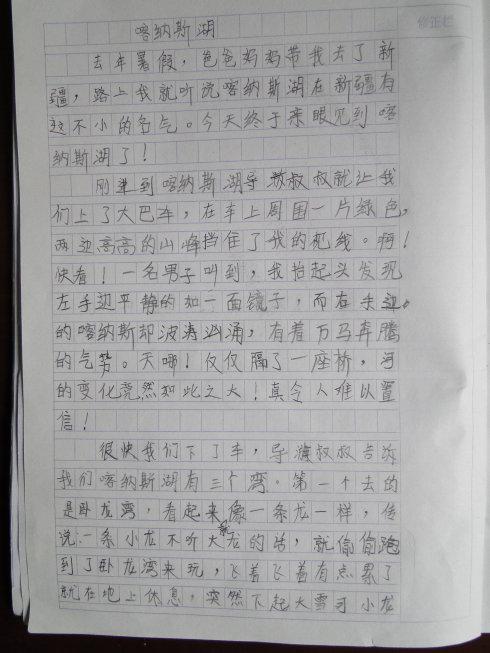 修正栏
喀纳斯湖
去年暑假，爸爸妈妈带我去了新
疆，路上我就听说喀纳斯湖在新疆有
这不小的名气。今天终于亲眼见到喀
纳斯湖了！
刚坐到喀纳斯湖导游叔叔就让我
们上了大巴车，在车上周围一片绿色，
两边高高的山峰挡住了我的视线。啊！
快看！一名男子叫到，我抬起头发现
左手边平静的如一面镜子，而在手边。
的喀纳斯却波涛汹涌，有着万马奔腾
的气势。天哪！仅仅隔了一座桥，河
的变化竟然如此之大！真令人难以置
信！
很快我们下了车，导游叔叔告诉
我们喀纳斯湖有三个湾。第一个去的
是卧龙湾，看起来像一条龙一样，传
说：一条小龙不听大龙的话，就偷偷跑
到了卧龙湾来玩，飞着飞着有点累了
就在地上休息，突然下起大雪可小龙